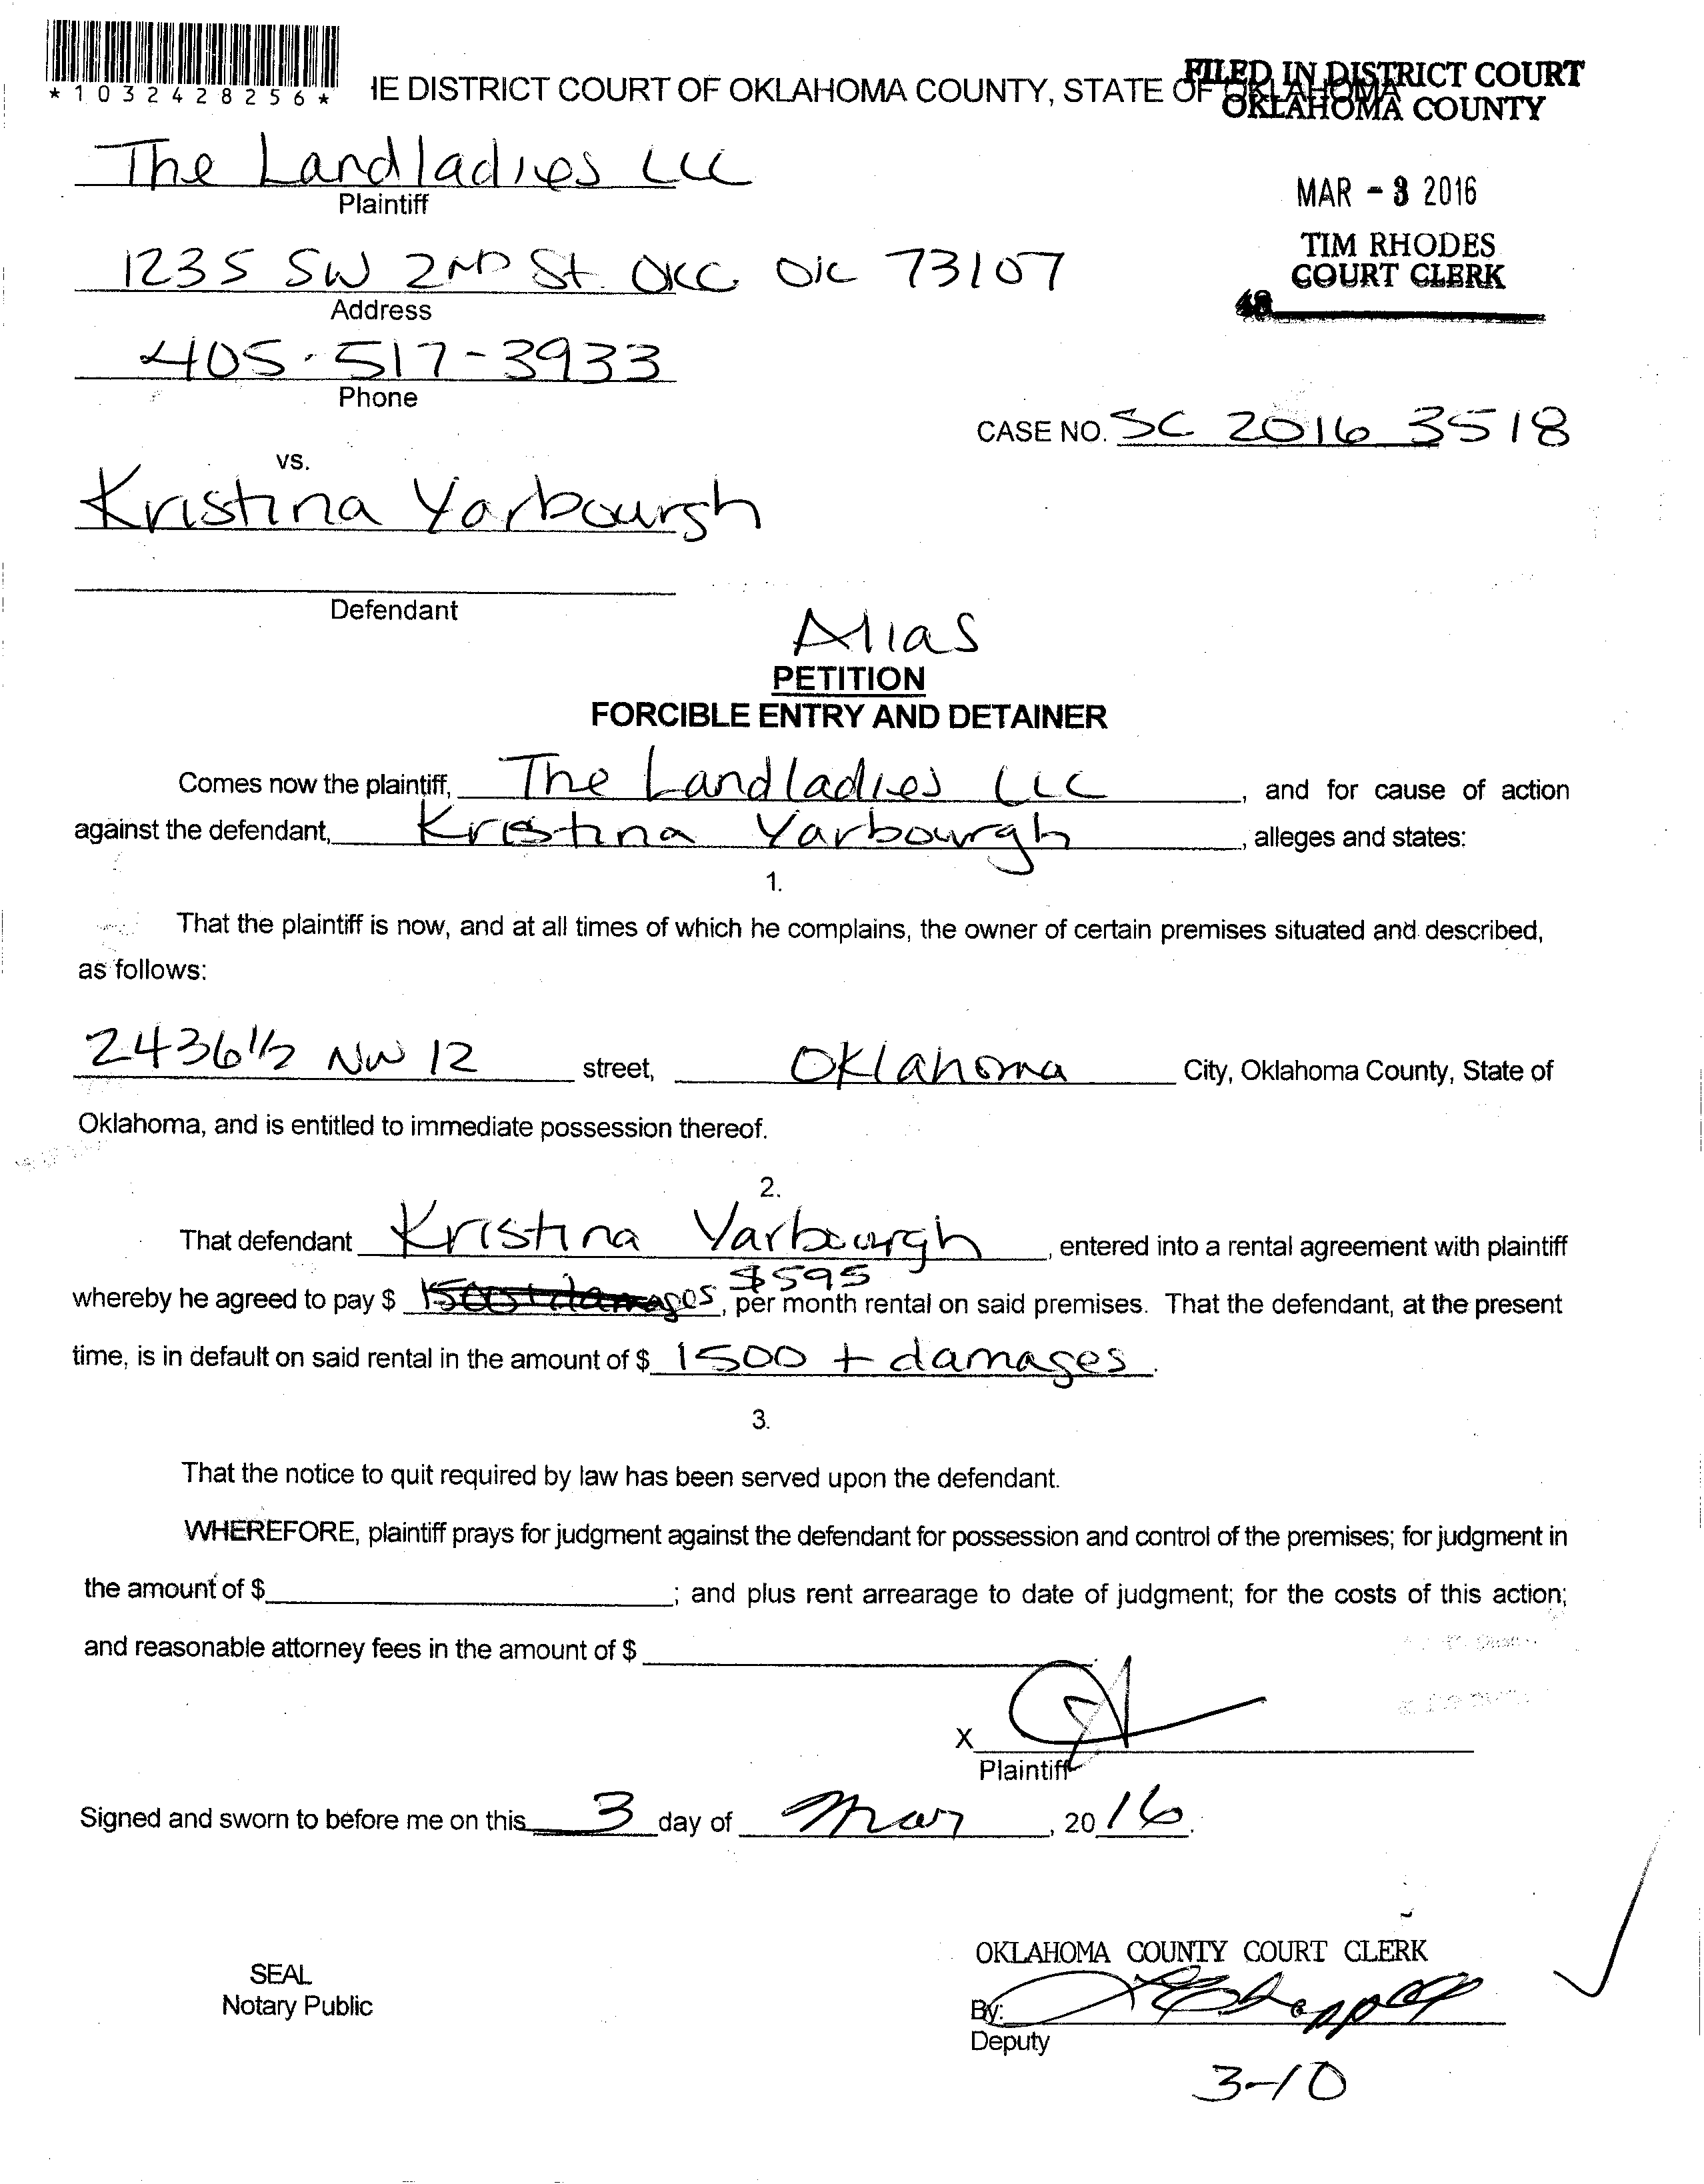 *1032428256*
IE DISTRICT COURT OF OKLAHOMA COUNTY, STATE OF OKLAHOMA
FILED IN DISTRICT COURT
OKLAHOMA COUNTY
The Landladies LLC
Plaintiff
MAR - 3 2016
TIM RHODES
COURT CLERK
48
1235 SW 2ND St. OKC OK 73107
Address
405-517-3933
Phone
CASE NO. SC 2016 3518
vs.
Kristina Yarbourgh
Defendant
Alias
PETITION
FORCIBLE ENTRY AND DETAINER
Comes now the plaintiff, The Landladies LLC, and for cause of action
against the defendant, Kristina Yarbourgh, alleges and states:
1.
That the plaintiff is now, and at all times of which he complains, the owner of certain premises situated and described,
as follows:
2436 1/2 NW 12 street, Oklahoma City, Oklahoma County, State of
Oklahoma, and is entitled to immediate possession thereof.
2.
That defendant Kristina Yarbourgh, entered into a rental agreement with plaintiff
$595
whereby he agreed to pay $ 1500 + damages, per month rental on said premises. That the defendant, at the present
time, is in default on said rental in the amount of $ 1500 + damages.
3.
That the notice to quit required by law has been served upon the defendant.
WHEREFORE, plaintiff prays for judgment against the defendant for possession and control of the premises; for judgment in
the amount of $ ; and plus rent arrearage to date of judgment; for the costs of this action;
and reasonable attorney fees in the amount of $ .
X
Plaintiff
Signed and sworn to before me on this 3 day of Mar, 20 16.
OKLAHOMA COUNTY COURT CLERK
SEAL
Notary Public
By:
Deputy
3-10